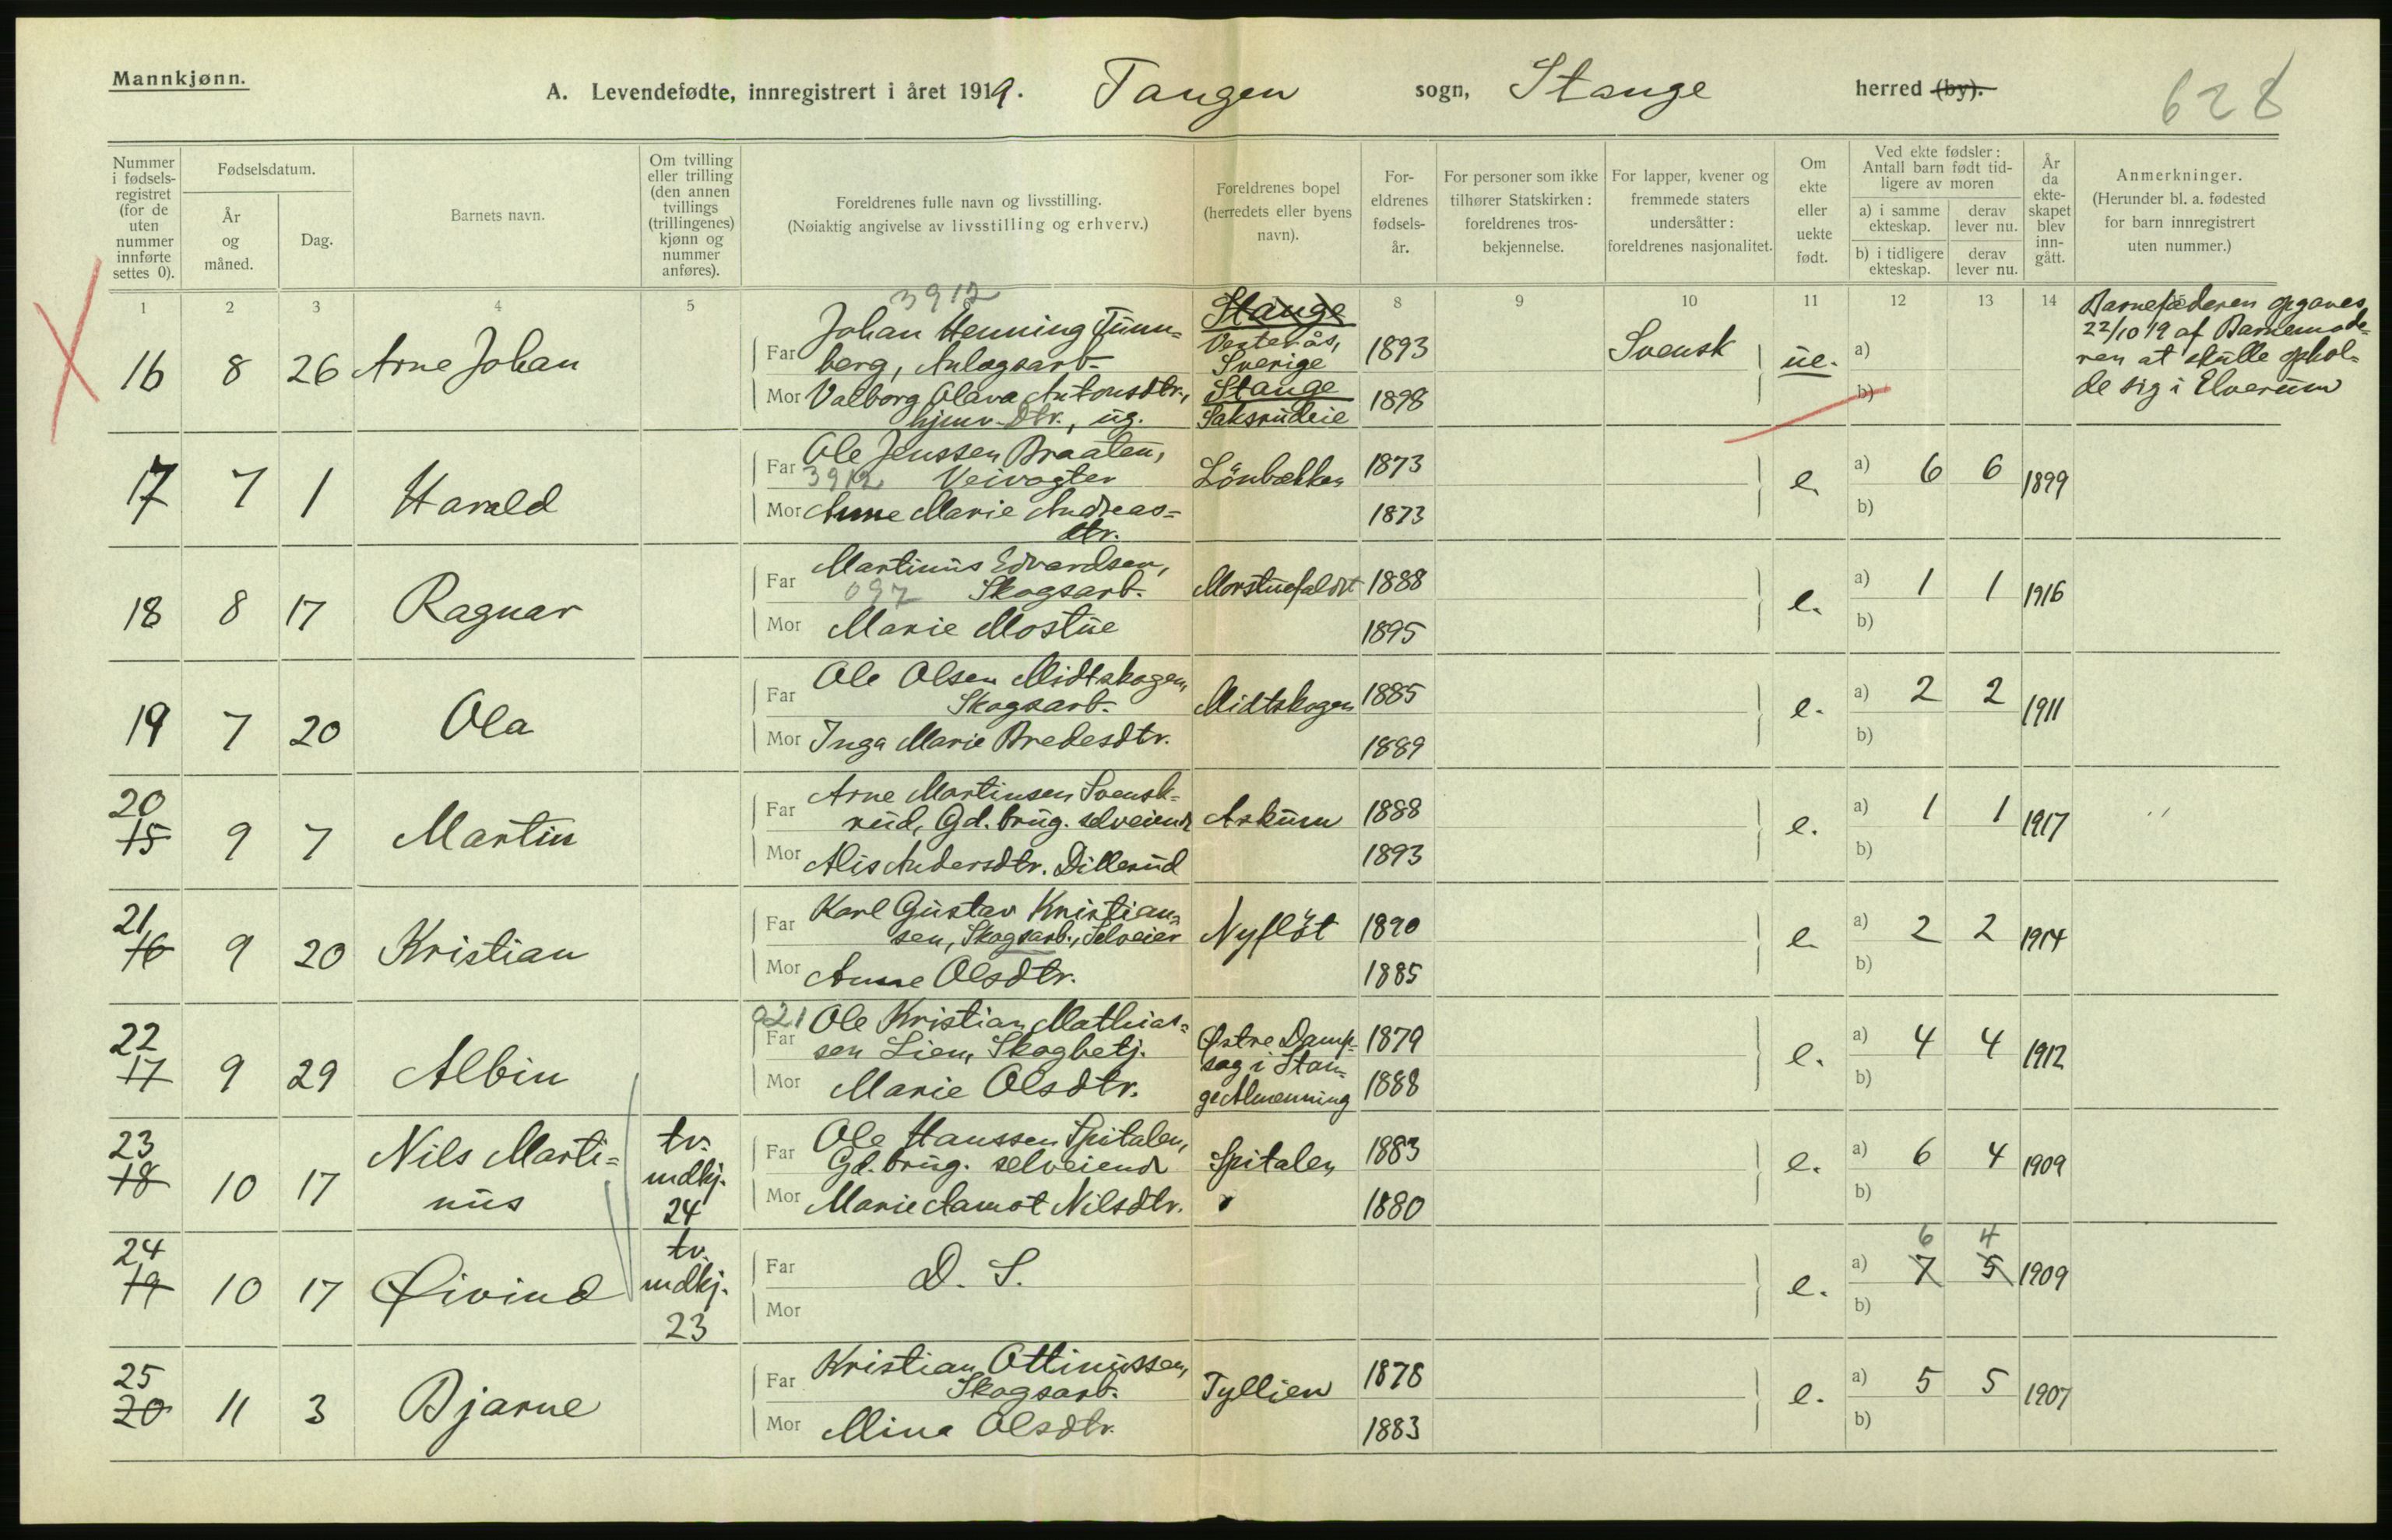 Mannkjønn.
A. Levendefødte, innregistrert i året 1919. Tangen sogn, Stange herred (by).
628
Nummer i fødsels-registret (for de uten nummer innførte settes 0).
Fødselsdatum.
År og måned.
Dag.
Barnets navn.
Om tvilling eller trilling (den annen tvillings (trillingenes) kjønn og nummer anføres).
Foreldrenes fulle navn og livsstilling.
(Nøiaktig angivelse av livsstilling og erhverv.)
Foreldrenes bopel (herredets eller byens navn).
For-eldrenes fødsels-år.
For personer som ikke tilhører Statskirken: foreldrenes tros-bekjennelse.
For lapper, kvener og fremmede staters undersåtter: foreldrenes nasjonalitet.
Om ekte eller uekte født.
Ved ekte fødsler: Antall barn født tid-ligere av moren
a) i samme ekteskap.
derav lever nu.
b) i tidligere ekteskap.
derav lever nu.
År da ekte-skapet blev inn-gått.
Anmerkninger.
(Herunder bl. a. fødested for barn innregistrert uten nummer.)
1 2 3 4 5 8 9 10 11 12 13 14
3912
16 8 26 Arne Johan
Far Johan Henning Tunn=
berg, Anlægsarb.
Stange
Vesterås,
Sverige
1893 Svensk ue. a)
Mor Valborg Olava Antonsdtr.,
hjemv. Dtr., ug.
Stange
Saksrudeie
1898 b)
Barnefaderen opgaves
22/10 19 af Barnemode=
ren at skulle ophol=
de sig i Elverum
17 7 1 Harald
Far Ole Jenssen Braaten,
3912 Veivogter
Lönbækken 1873 e. a) 6 6 1899
Mor Anne Marie Andreas=
dtr.
1873 b)
18 8 17 Ragnar
Far Martinus Edvardsen,
097 Skogsarb.
Morstuefaldet 1888 e. a) 1 1 1916
Mor Marie Mostue 1895 b)
19 7 20 Ola
Far Ole Olsen Midtskogen,
Skogsarb.
Midtskogen 1885 e. a) 2 2 1911
Mor Inga Marie Bredesdtr. 1889 b)
20
15 9 7 Martin
Far Arne Martinsen Svensk=
rud, Gd.brug. selveiende
Askum 1888 e. a) 1 1 1917
Mor Alis Andersdtr. Dillerud 1893 b)
21
16 9 20 Kristian
Far Karl Gustav Kristian=
sen, Skogsarb., Selveier
Nyflöt 1890 e. a) 2 2 1914
Mor Anne Olsdtr. 1885 b)
22
17 9 29 Albin
021 Far Ole Kristian Mathias=
sen Lien, Skogbetj.
Østre Damp=
sag i Stan=
ge Almenning
1879 e. a) 4 4 1912
Mor Marie Olsdtr. 1888 b)
23
18 10 17 Nils Marti=
nus
tv.
mdkj.
24
Far Ole Hanssen Spitalen,
Gd.brug. selveiende
Spitalen 1883 e. a) 6 4 1909
Mor Marie Aamot Nilsdtr. 1880 b)
24
19 10 17 Øivind
tv.
mdkj.
23
Far D. S.
Mor
e. a) 6 4
7 5 1909
b)
25
20 11 3 Bjarne
Far Kristian Ottinussen,
Skogsarb.
Tyllien 1878 e. a) 5 5 1907
Mor Mina Olsdtr. 1883 b)